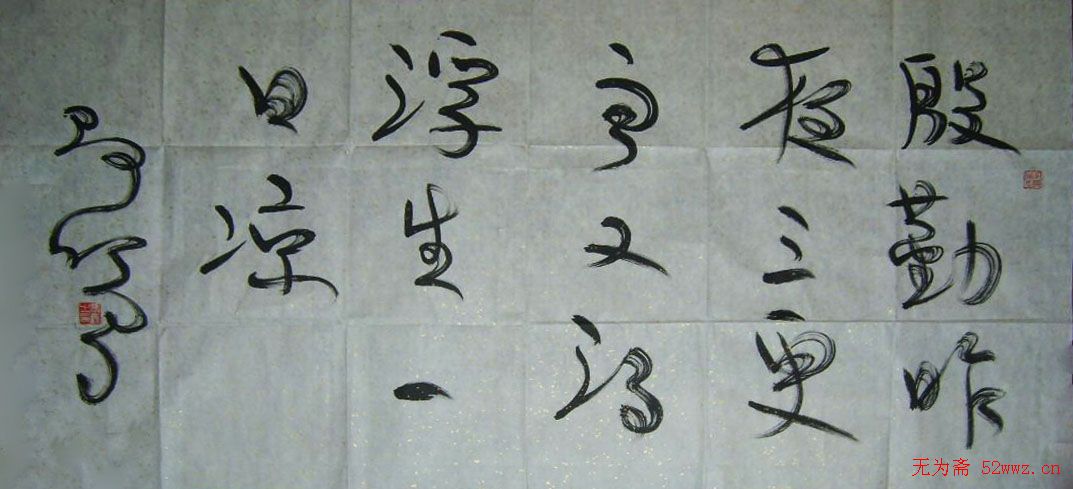 殷勤昨
夜三更
雨又得
浮生一
日凉
无为斋 52wwz.cn